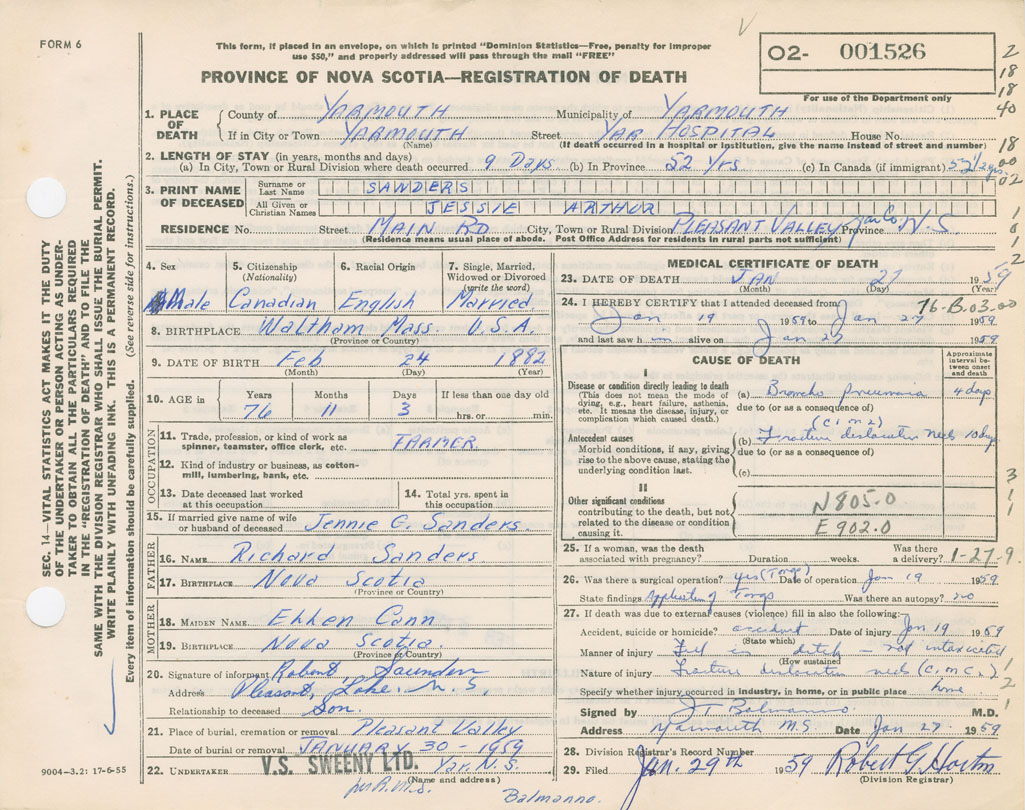 FORM 6
This form, if placed in an envelope, on which is printed "Dominion Statistics—Free, penalty for improper
use $50," and properly addressed will pass through the mail "FREE"
PROVINCE OF NOVA SCOTIA—REGISTRATION OF DEATH
02- 001526
For use of the Department only
2
18
18
40
18
00
02
1. PLACE OF DEATH
County of YARMOUTH Municipality of YARMOUTH
If in City or Town YARMOUTH Street YAR HOSPITAL House No.
(Name) (If death occurred in a hospital or institution, give the name instead of street and number)
2. LENGTH OF STAY (in years, months and days)
(a) In City, Town or Rural Division where death occurred 9 Days (b) In Province 52 Yrs (c) In Canada (if immigrant) 52 yrs.
3. PRINT NAME OF DECEASED
Surname or Last Name SANDERS
All Given or Christian Names JESSIE ARTHUR
RESIDENCE No. Street MAIN RD City, Town or Rural Division PLEASANT VALLEY Yar Co. Province N.S.
(Residence means usual place of abode. Post Office Address for residents in rural parts not sufficient)
4. Sex
Male
5. Citizenship (Nationality)
Canadian
6. Racial Origin
English
7. Single, Married, Widowed or Divorced (write the word)
Married
8. BIRTHPLACE Waltham Mass. U.S.A.
(Province or Country)
9. DATE OF BIRTH Feb 24 1882
(Month) (Day) (Year)
10. AGE in Years Months Days If less than one day old
76 11 3 hrs. or min.
OCCUPATION
11. Trade, profession, or kind of work as spinner, teamster, office clerk, etc. FARMER
12. Kind of industry or business, as cotton-mill, lumbering, bank, etc.
13. Date deceased last worked at this occupation
14. Total yrs. spent in this occupation
15. If married give name of wife or husband of deceased Jennie E. Sanders.
FATHER
16. NAME Richard Sanders
17. BIRTHPLACE Nova Scotia
(Province or Country)
MOTHER
18. MAIDEN NAME Ehhen Cann
19. BIRTHPLACE Nova Scotia
(Province or Country)
20. Signature of informant Robert Saunders
Address Pleasant Lake N.S.
Relationship to deceased Son.
21. Place of burial, cremation or removal Pleasant Valley
Date of burial or removal JANUARY 30 - 1959
22. UNDERTAKER V.S. SWEENY LTD. Yar. N.S.
(Name and address)
Balmanno.
MEDICAL CERTIFICATE OF DEATH
23. DATE OF DEATH JAN 27 1959
(Month) (Day) (Year)
76-B.03.00
24. I HEREBY CERTIFY that I attended deceased from
Jan 19 1959 to Jan 27 1959
and last saw him alive on Jan 27 1959
CAUSE OF DEATH
Approximate interval between onset and death
I
Disease or condition directly leading to death
(This does not mean the mode of dying, e.g., heart failure, asthenia, etc. It means the disease, injury, or complication which caused death.)
(a) Broncho pneumonia 4 days
due to (or as a consequence of)
Antecedent causes
Morbid conditions, if any, giving rise to the above cause, stating the underlying condition last.
(b) Fracture dislocation neck 10 days
due to (or as a consequence of)
(c)
II
Other significant conditions
contributing to the death, but not related to the disease or condition causing it.
N805.0
E902.0
25. If a woman, was the death associated with pregnancy? Duration weeks. Was there a delivery? 1-27-9
26. Was there a surgical operation? yes (Tongs) Date of operation Jan 19 1959
State findings Application of Tongs Was there an autopsy? no
27. If death was due to external causes (violence) fill in also the following:
Accident, suicide or homicide? accident Date of injury Jan 19 1959
(State which)
Manner of injury Fell in ditch - not intoxicated
(How sustained)
Nature of injury Fracture dislocation neck
Specify whether injury occurred in industry, in home, or in public place home
Signed by J T Balmanno M.D.
Address Yarmouth N.S. Date Jan 27 1959
28. Division Registrar's Record Number
29. Filed Jan. 29th 1959 Robert G Horton
(Division Registrar)
9004-3.2: 17-6-55
SEC. 14—VITAL STATISTICS ACT MAKES IT THE DUTY
OF THE UNDERTAKER OR PERSON ACTING AS UNDER-
TAKER TO OBTAIN ALL THE PARTICULARS REQUIRED
IN THE "REGISTRATION OF DEATH" AND TO FILE THE
SAME WITH THE DIVISION REGISTRAR WHO SHALL ISSUE THE BURIAL PERMIT.
WRITE PLAINLY WITH UNFADING INK. THIS IS A PERMANENT RECORD.
Every item of information should be carefully supplied. (See reverse side for instructions.)